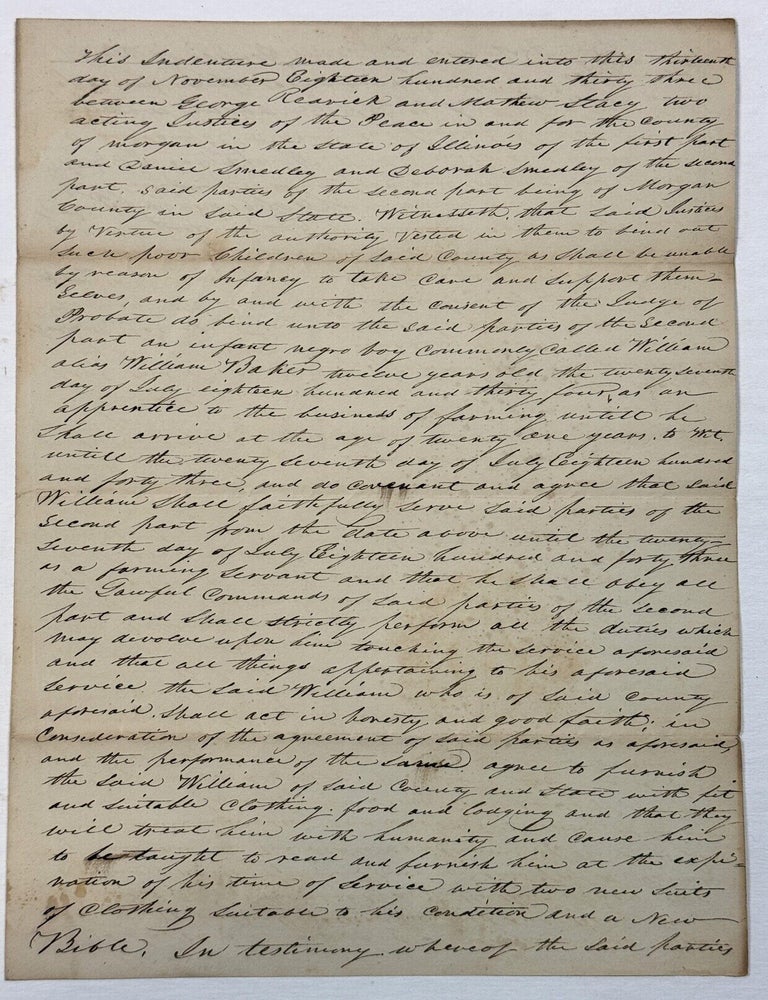 This Indenture made and entered into this thirteenth
day of November Eighteen hundred and thirty three
between George Rearick and Mathew Stacy two
acting Justices of the Peace in and for the County
of morgan in the State of Illinois of the first part
and Daniel Smedley and Deborah Smedley of the second
part. said parties of the second part being of Morgan
County in said State. Witnesseth, that said Justices
by Virtue of the authority Vested in them to bind out
such poor Children of said County as shall be unable
by reason of Infancy to take Care and support them-
selves, and by and with the consent of the Judge of
Probate do bind unto the said parties of the Second
part an infant negro boy Commonly Called William
alias William Baker twelve years old the twenty seventh
day of July eighteen hundred and thirty four, as an
apprentice to the business of farming untill he
Shall arrive at the age of twenty one years. to Wit,
untill the twenty seventh day of July Eighteen hundred
and forty three, and do covenant and agree that said
William shall faithfully serve said parties of the
Second part from the date above until the twenty-
seventh day of July Eighteen hundred and forty three
as a farming servant and that he shall obey all
the Lawful Commands of said parties of the second
part and shall strictly perform all the duties which
may devolve upon him touching the service aforesaid
and that all things appertaining to his aforesaid
service. the said William who is of said County
aforesaid. shall act in honesty and good faith; in
Consideration of the agreement of said parties as aforesaid,
and the performance of the same. agree to furnish
the said William of said County and State with fit
and suitable Clothing. food and lodging and that they
will treat him with humanity and cause him
to be taught to read and furnish him at the expi-
ration of his time of service with two new suits
of Clothing suitable to his condition and a New
Bible. In testimony whereof the said parties